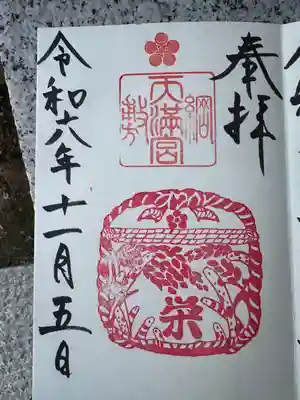 奉拝
綱敷天満宮
栄
令和六年十一月五日